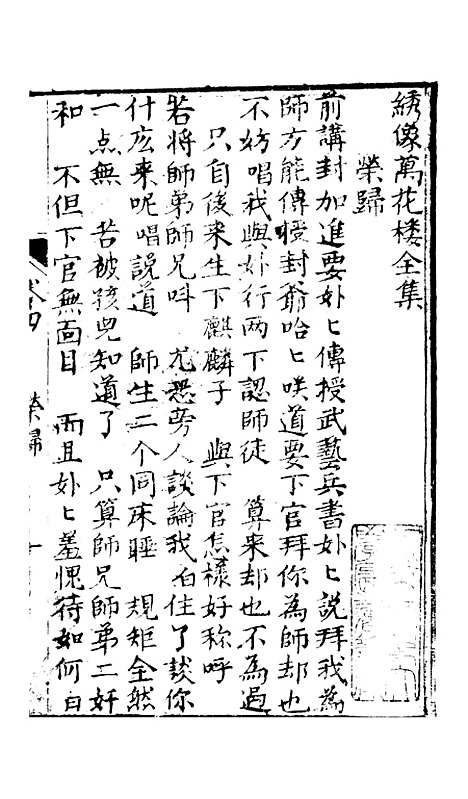 綉像萬花楼全集
榮歸
前講封加進要外〻傳授武藝兵書外〻說拜我為
師方能傳授封爺哈〻咲道要下官拜你為師却也
不妨唱我與外行两下認師徒　算来却也不為過
只自後来生下麒麟子　與下官怎樣好称呼
若将師弟師兄呌　尤恐旁人談論我　白住了談你
什庅来呢唱說道　師生二个同床睡　規矩全然
一点無　若被孩児知道了　只算師兄師弟二奸
和　不但下官無面目　而且外〻羞愧待如何　白
卷四
榮歸
一